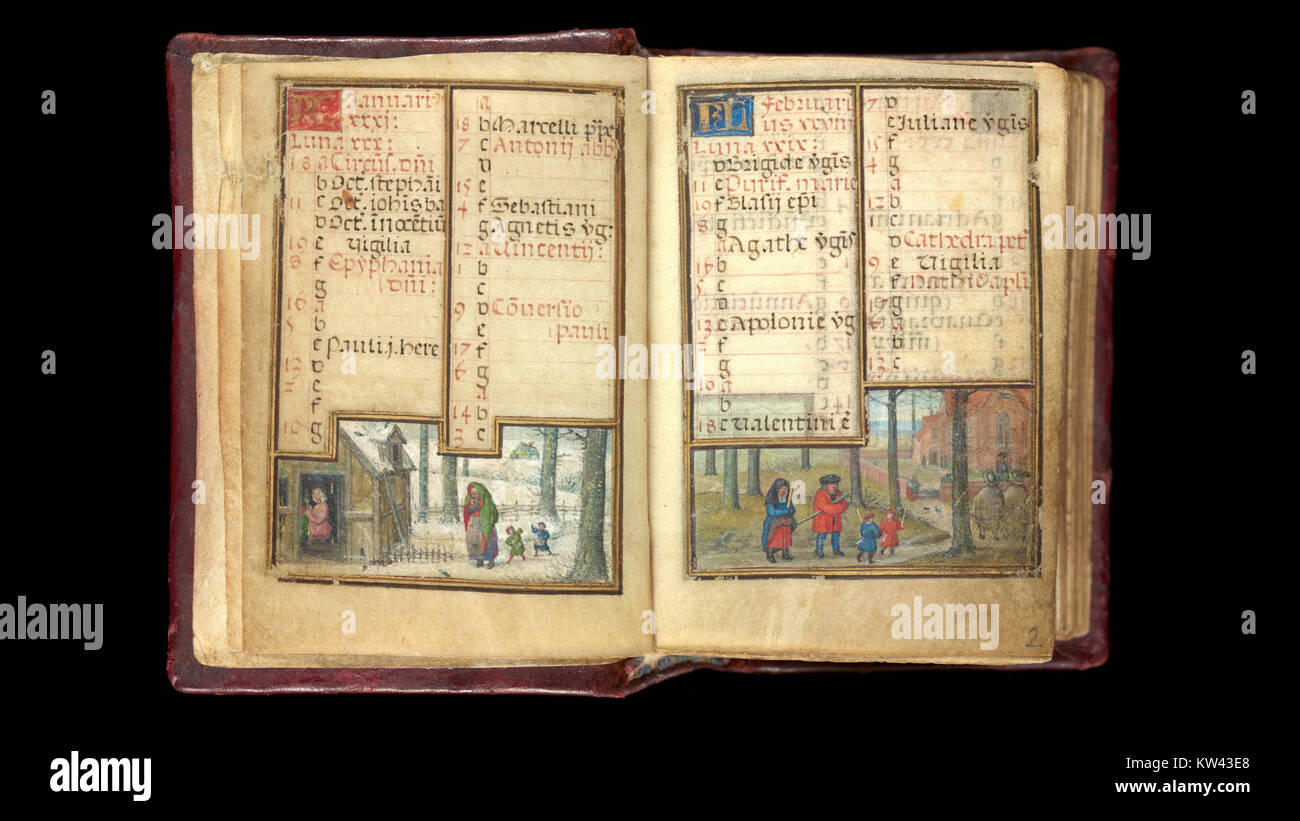 Januari9
xxxj:
Luna xxx:
18 a Circũs. dñi
b Oct. stephãi
11 c Oct. iohis ba
d Oct. inocetiũ
19 e Vigilia
8 f Epyphania
g dñi:
16 a
5 b
c Pauli j. here
13 d
2 e
f
10 g
a
18 b Marcelli
7 c Antonij abb
d
15 e
4 f Sebastiani
g Agnetis vg:
12 a Vincentij:
1 b
c
9 d Cõversio
e Pauli
17 f
6 g
a
14 b
3 c
KL februari
us xxviij
Luna xxix:
d Brigide vgis
11 e Purif. marie
19 f Blasij epi
8 g
a Agathe vgis
16 b
5 c
d
13 e Apolonie vg
2 f
g
10 a
b
18 c Valentini
7 d
e Juliane vgis
15 f
4 g
a
12 b
1 c
d Cathedra pet
9 e Vigilia
f Mathie apli
17 g
6 a
b
13 c
2
alamy
Image ID: KW43E8
www.alamy.com